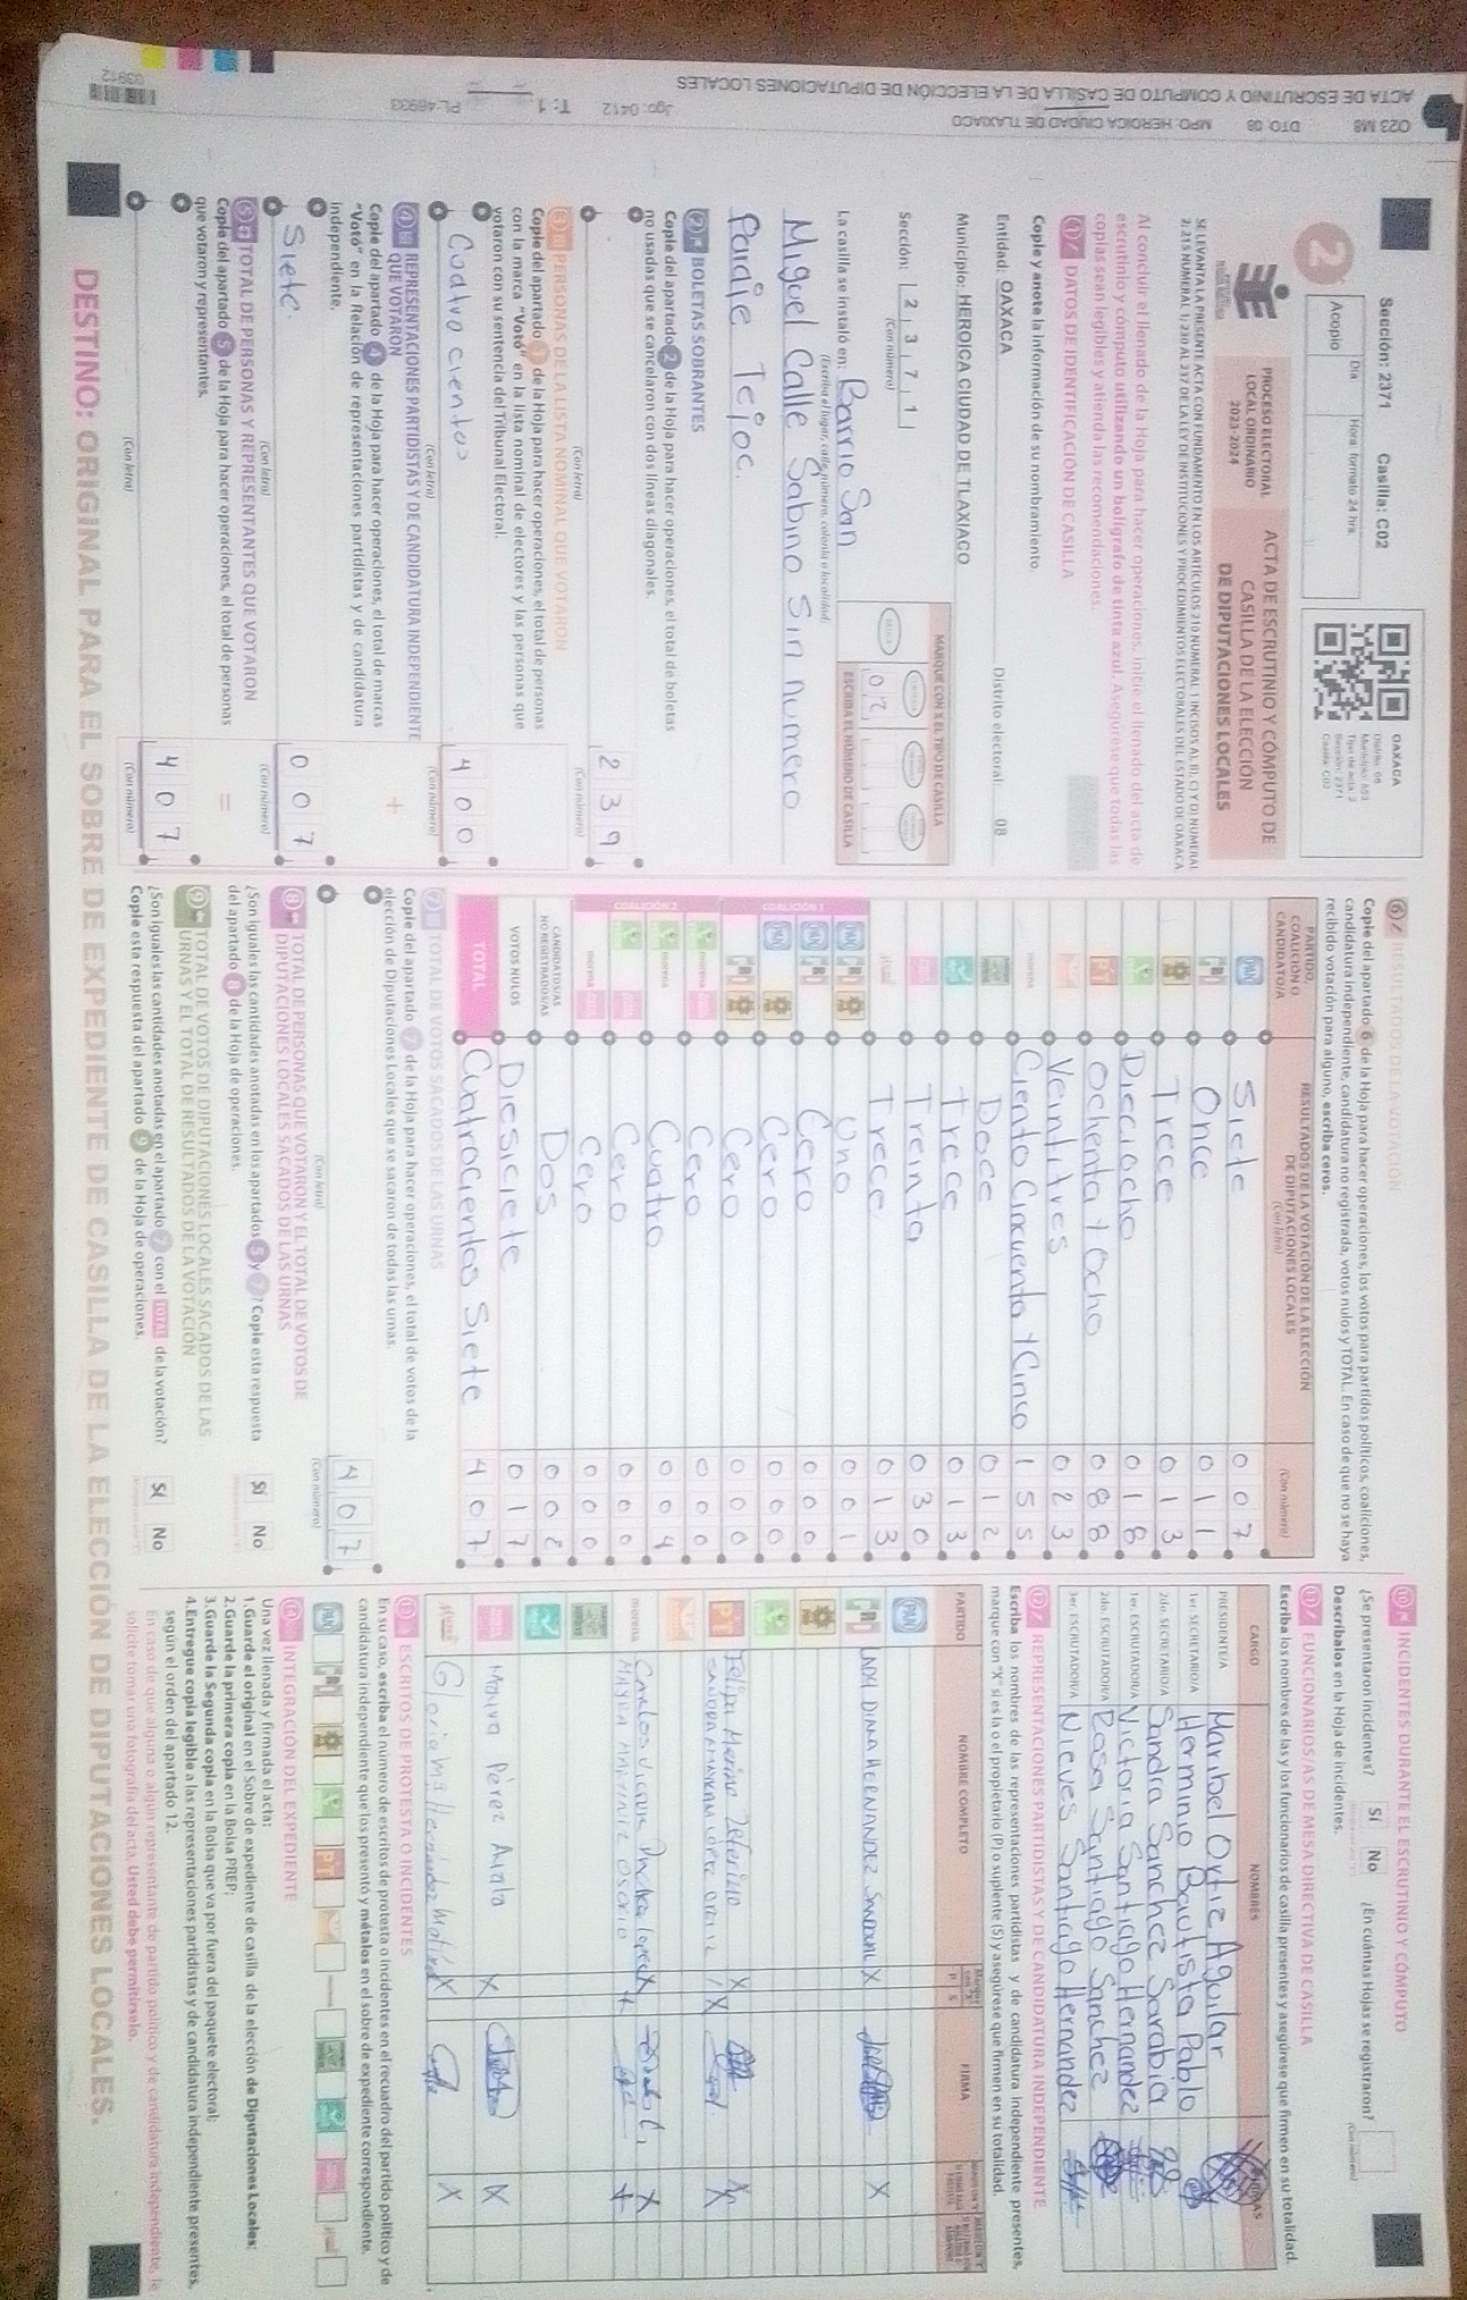 ACTA DE ESCRUTINIO Y CÓMPUTO DE CASILLA DE LA ELECCIÓN DE DIPUTACIONES LOCALES
023 M8 DTO. 08 MPO. HEROICA CIUDAD DE TLAXIACO Jgo: 0412 T: 1 PL:46933
03912
Sección: 2371 Casilla: C02
2
Día Hora formato 24 hrs.
Acopio
OAXACA
PROCESO ELECTORAL
LOCAL ORDINARIO
2023-2024
ACTA DE ESCRUTINIO Y CÓMPUTO DE
CASILLA DE LA ELECCIÓN
DE DIPUTACIONES LOCALES
Al concluir el llenado de la Hoja para hacer operaciones, inicie el llenado del acta de
escrutinio y cómputo utilizando un bolígrafo de tinta azul. Asegúrese que todas las
copias sean legibles y atienda las recomendaciones.
1 DATOS DE IDENTIFICACIÓN DE CASILLA
Copie y anote la información de su nombramiento
Entidad: OAXACA Distrito electoral: 08
Municipio: HEROICA CIUDAD DE TLAXIACO
Sección: 2 3 7 1
(Con número)
MARQUE CON X EL TIPO DE CASILLA
02
ESCRIBA EL NÚMERO DE CASILLA
La casilla se instaló en: Barrio San
(Escriba el lugar, calle, número, colonia o localidad)
Miguel Calle Sabino Sin numero
Paraje Tejoc.
2 BOLETAS SOBRANTES
Copie del apartado 2 de la Hoja para hacer operaciones, el total de boletas
no usadas que se cancelaron con dos líneas diagonales.
2 3 9
(Con letra) (Con número)
3 PERSONAS DE LA LISTA NOMINAL QUE VOTARON
Copie del apartado 3 de la Hoja para hacer operaciones, el total de personas
con la marca "Votó" en la lista nominal de electores y las personas que
votaron con su sentencia del Tribunal Electoral.
Cuatro cientos 4 0 0
(Con letra) (Con número)
4 REPRESENTACIONES PARTIDISTAS Y DE CANDIDATURA INDEPENDIENTE
QUE VOTARON
Copie del apartado 4 de la Hoja para hacer operaciones, el total de marcas
"Votó" en la Relación de representaciones partidistas y de candidatura
independiente.
Siete. 0 0 7
(Con letra) (Con número)
5 TOTAL DE PERSONAS Y REPRESENTANTES QUE VOTARON
Copie del apartado 5 de la Hoja para hacer operaciones, el total de personas
que votaron y representantes.
4 0 7
(Con letra) (Con número)
6 RESULTADOS DE LA VOTACIÓN
Copie del apartado 6 de la Hoja para hacer operaciones, los votos para partidos políticos, coaliciones,
candidatura independiente, candidatura no registrada, votos nulos y TOTAL. En caso de que no se haya
recibido votación para alguno, escriba ceros.
PARTIDO, COALICIÓN O CANDIDATO/A
RESULTADOS DE LA VOTACIÓN DE LA ELECCIÓN
DE DIPUTACIONES LOCALES
(Con letra) (Con número)
PAN Siete 0 0 7
PRI Once 0 1 1
Trece 0 1 3
Dieciocho 0 1 8
PT Ochenta y Ocho 0 8 8
Veintitres 0 2 3
morena Ciento Cincuenta y Cinco 1 5 5
Doce 0 1 2
trece 0 1 3
Treinta 0 3 0
Trece 0 1 3
COALICIÓN 1
Uno 0 0 1
Cero 0 0 0
Cero 0 0 0
Cero 0 0 0
COALICIÓN 2
Cero 0 0 0
Cuatro 0 0 4
Cero 0 0 0
Cero 0 0 0
CANDIDATOS/AS NO REGISTRADOS/AS Dos 0 0 2
VOTOS NULOS Diesiciete 0 1 7
TOTAL Cuatrocientos Siete 4 0 7
7 TOTAL DE VOTOS SACADOS DE LAS URNAS
Copie del apartado 7 de la Hoja para hacer operaciones, el total de votos de la
elección de Diputaciones Locales que se sacaron de todas las urnas.
4 0 7
(Con letra) (Con número)
8 TOTAL DE PERSONAS QUE VOTARON Y EL TOTAL DE VOTOS DE
DIPUTACIONES LOCALES SACADOS DE LAS URNAS
¿Son iguales las cantidades anotadas en los apartados 5 y 7? Copie esta respuesta
del apartado 8 de la Hoja de operaciones. Sí No
9 TOTAL DE VOTOS DE DIPUTACIONES LOCALES SACADOS DE LAS
URNAS Y EL TOTAL DE RESULTADOS DE LA VOTACIÓN
¿Son iguales las cantidades anotadas en el apartado 7 con el TOTAL de la votación?
Copie esta respuesta del apartado 9 de la Hoja de operaciones. Sí No
10 INCIDENTES DURANTE EL ESCRUTINIO Y CÓMPUTO
¿Se presentaron incidentes? Sí No ¿En cuántas Hojas se registraron?
(Con número)
Descríbalos en la Hoja de incidentes.
11 FUNCIONARIOS/AS DE MESA DIRECTIVA DE CASILLA
Escriba los nombres de las y los funcionarios de casilla presentes y asegúrese que firmen en su totalidad.
CARGO NOMBRES FIRMAS
PRESIDENTE/A Maribel Ortiz Aguilar
1er. SECRETARIO/A Herminio Bautista Pablo
2do. SECRETARIO/A Sandra Sanchez Sarabia
1er. ESCRUTADOR/A Victoria Santiago Hernandez
2do. ESCRUTADOR/A Rosa Santiago Sanchez
3er. ESCRUTADOR/A Nieves Santiago Hernandez
12 REPRESENTACIONES PARTIDISTAS Y DE CANDIDATURA INDEPENDIENTE
Escriba los nombres de las representaciones partidistas y de candidatura independiente presentes,
marque con "X" si es la o el propietario (P) o suplente (S) y asegúrese que firmen en su totalidad.
PARTIDO NOMBRE COMPLETO FIRMA
PAN
PRI LADY DINA HERNANDEZ X X
PT Felipa Merino Zeferino X
X X
morena Carlos X X
MAYRA MARTINEZ OSORIO
Pérez X X
Gloria Ma Hernandez X X
13 ESCRITOS DE PROTESTA O INCIDENTES
En su caso, escriba el número de escritos de protesta o incidentes en el recuadro del partido político y de
candidatura independiente que los presentó y métalos en el sobre de expediente correspondiente.
14 INTEGRACIÓN DEL EXPEDIENTE
Una vez llenada y firmada el acta:
1.Guarde el original en el Sobre de expediente de casilla de la elección de Diputaciones Locales;
2.Guarde la primera copia en la Bolsa PREP;
3.Guarde la Segunda copia en la Bolsa que va por fuera del paquete electoral;
4.Entregue copia legible a las representaciones partidistas y de candidatura independiente presentes,
según el orden del apartado 12.
En caso de que alguna o algún representante de partido político y de candidatura independiente, le
solicite tomar una fotografía del acta. Usted debe permitírselo.
DESTINO: ORIGINAL PARA EL SOBRE DE EXPEDIENTE DE CASILLA DE LA ELECCIÓN DE DIPUTACIONES LOCALES.